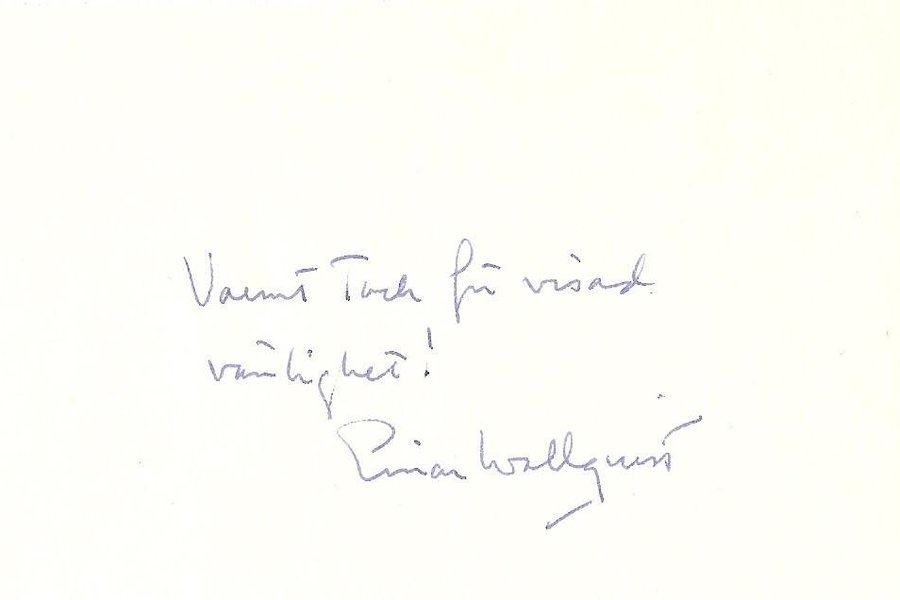 Varmt Tack för visad
vänlighet!
Einar Wallquist